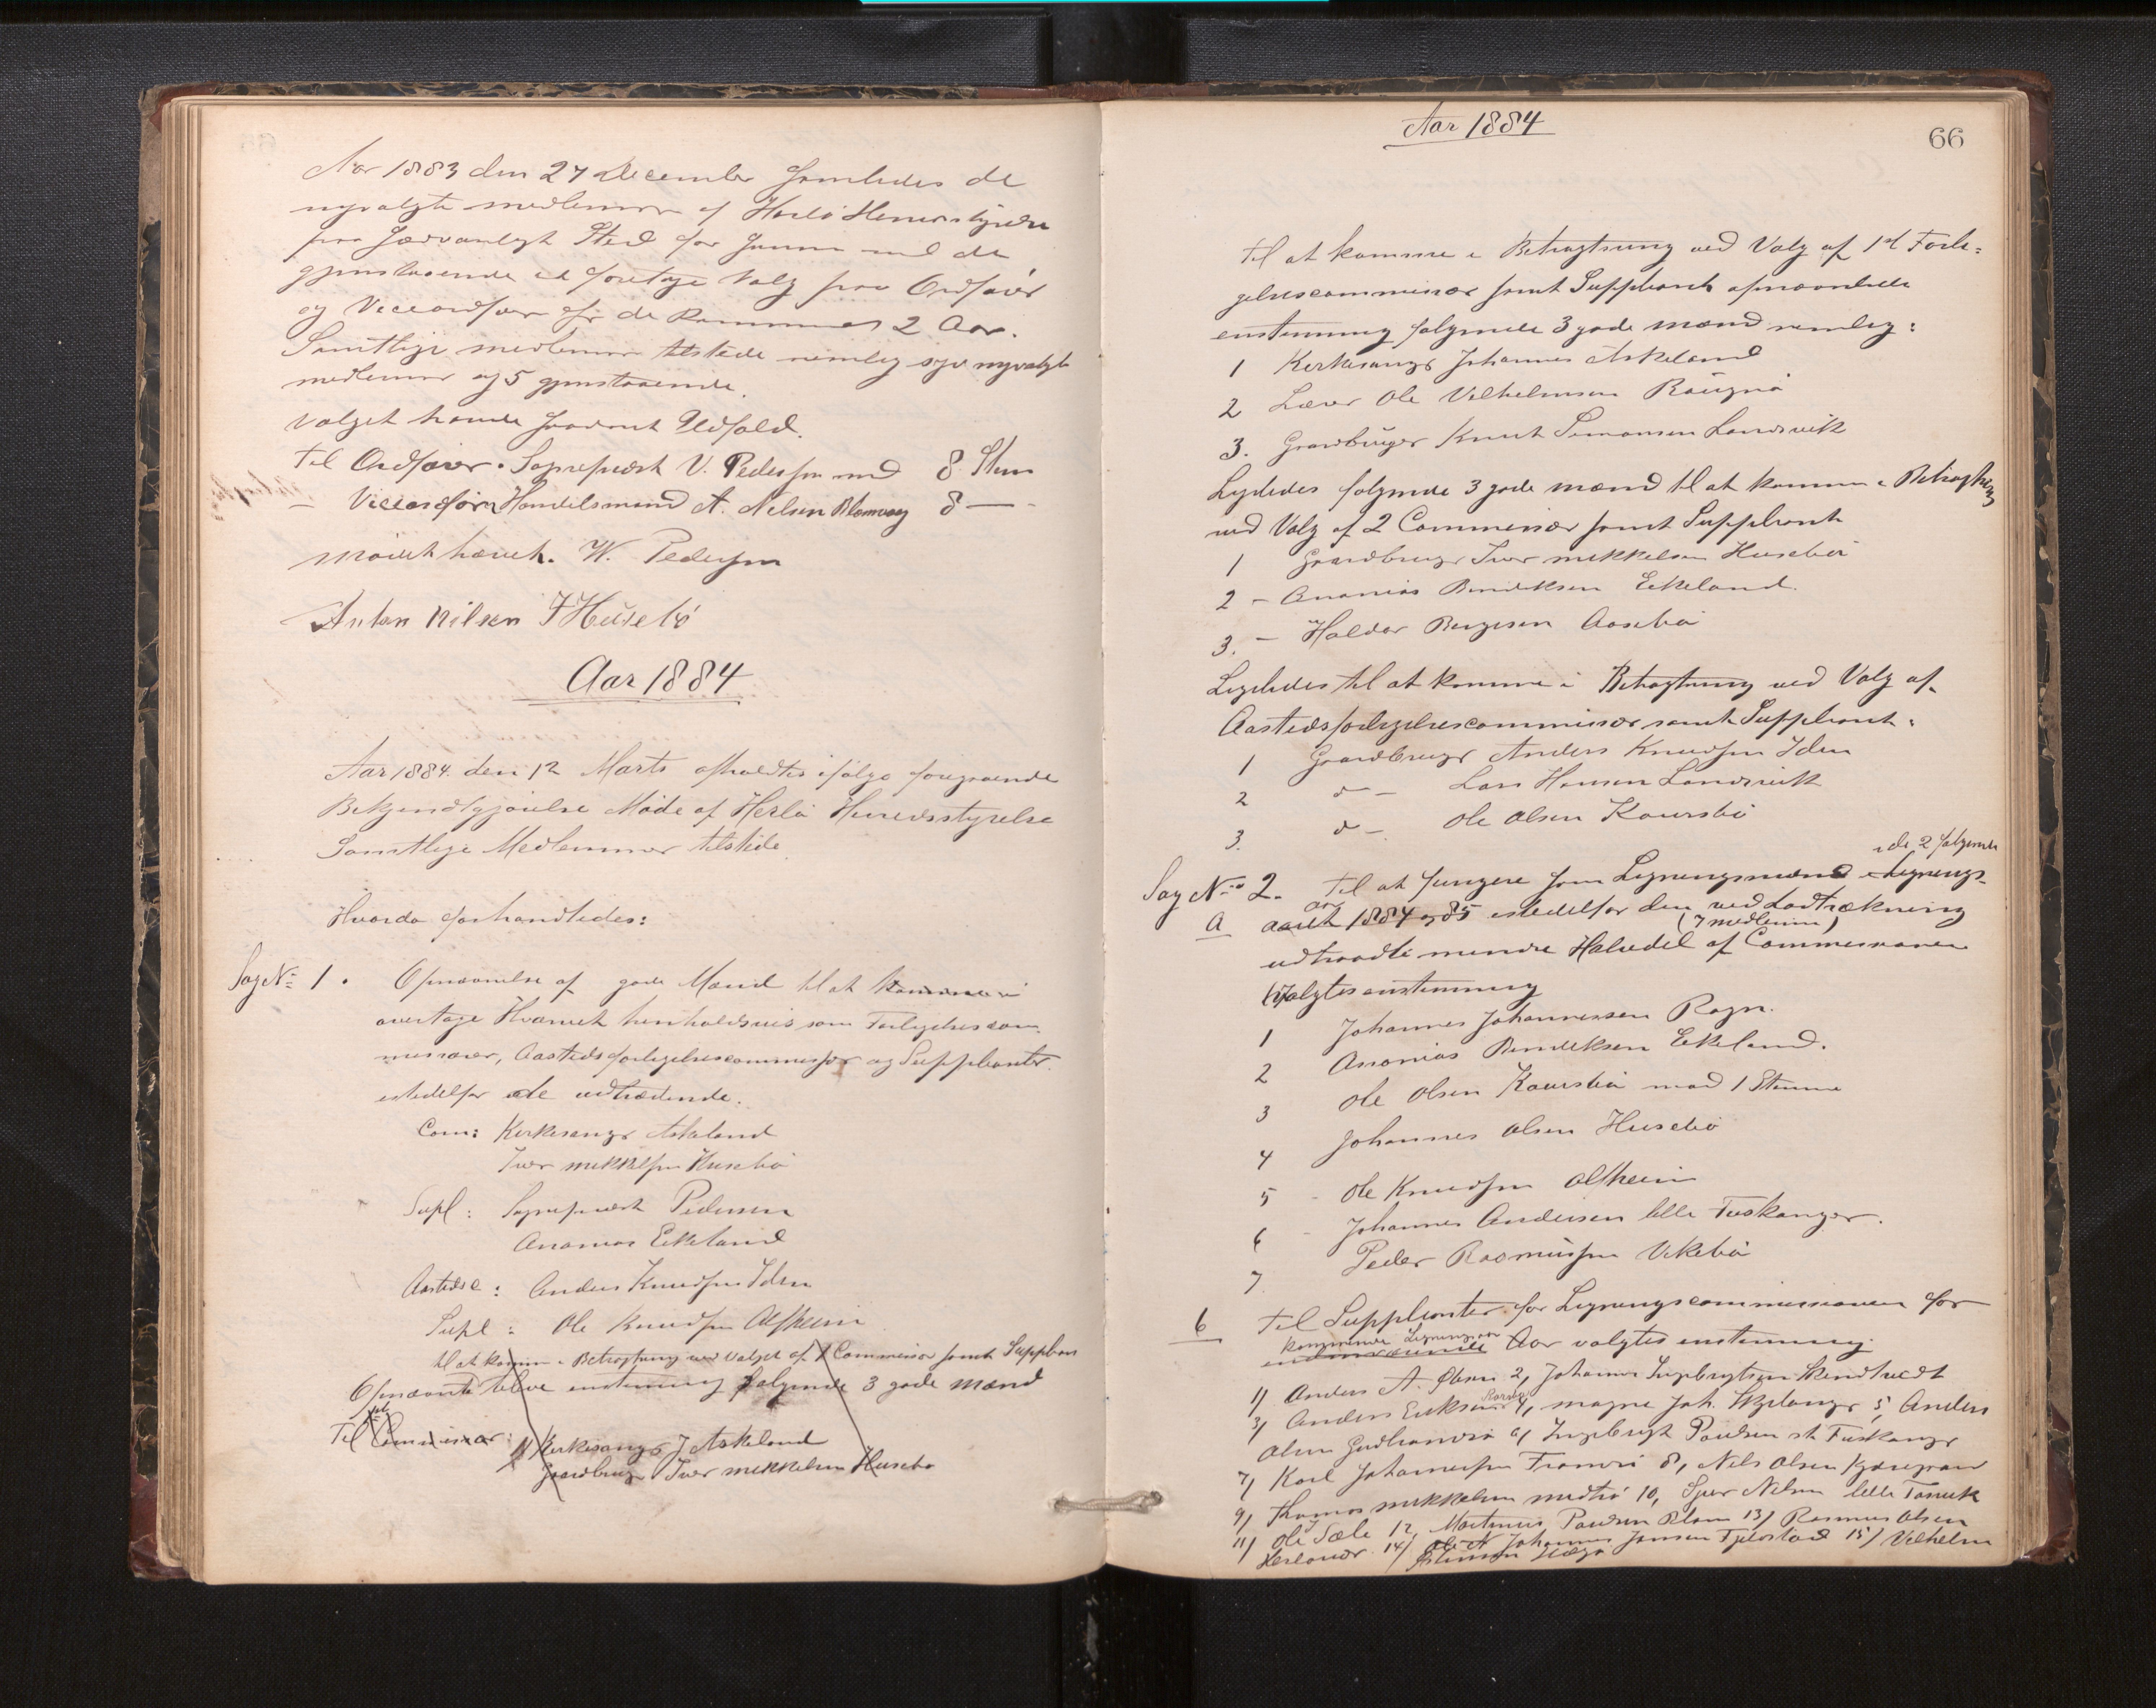 Aar 1883 den 27 December samledes de
nyvalgte medlemmer af Herlö Herredsstyrelse
paa sædvanligt Sted for samme med de
gjenstaaende at foretage Valg paa Ordförer
og Viceordförer for de kommende 2 Aar.
Samtlige medlemmer tilstede nemlig syv nyvalgte
medlemmer og 5 gjenstaaende.
Valget havde saadant Udfald.
Til Ordförer. Sogneprest V. Pedersen med 8 Stem
— Viceordförer Handelsmand A. Nilsen Blomvaag 8 —
Mödet hævet. W. Pedersen
Anton Nilsen I Husebö
Aar 1884
Aar 1884 den 12 Marts afholdtes ifölge foregaaende
Bekjendtgjörelse Möde af Herlö Herredsstyrelse
Samtlige Medlemmer tilstede.
Hvorda forhandledes:
Sag No 1. Opnævnelse af gode Mænd til at komme i
overtage Hvervet henholdsvis som Forligelsescom-
missærer, Aastedsforligelsescommissær og Suppleanter
istedetfor de udtrædende.
Com: Kirkesanger Askeland
Iver Mikkelsen Husebö
Supl: Sogneprest Pedersen
Ananias Eikeland
Aasteds c: Anders Knudsen Iden
Supl: Ole Knudsen Alfheim
til at komme i Betragtning ved Valget af 1 Commissær samt Supplean
Opnævnte blive enstemmig fölgende 3 gode Mænd
Til 1st Commissær: 1/ Kirkesanger J Askeland
Gaardbruger Iver Mikkelsen Husebö
Aar 1884
66
Til at komme i Betragtning ved Valg af 1st Forli-
gelsescommissær samt Suppleant opnævntes
enstemmig fölgende 3 gode mænd nemlig:
1 Kirkesanger Johannes Askeland
2 Lærer Ole Vilhelmsen
3. Gaardbruger Knut Simonsen Landsvik
Ligeledes fölgende 3 gode mænd til at komme i Betragtning
ved Valg af 2 Commissær samt Suppleant
1 Gaardbruger Iver Mikkelsen Husebö
2 — Ananias Bendiksen Eikeland.
3. — Haldor Børgesen Aasebö
Ligeledes til at komme i Betragtning ved Valg af
Aastedsforligelsescommissær samt Suppleant.
1 Gaardbruger Anders Knudsen Iden
2 do — Lars Hansen Landsvik
3. do — Ole Olsen Kaursbö
i de 2 fölgende
Sag No 2. Til at fungere som Ligningsmænd i Lignings-
A aaret aar 1884 og 85 istedetfor den ved Lodtrækning
(7 medlemmer)
udtraadte mindre Halvdel af Commissionen
valgtes enstemmig
1 Johannes Johannessen Ragn.
2 Ananias Bendiksen Eikeland.
3 Ole Olsen Kaursbö mod 1 Stemme
4 Johannes Olsen Husebö
5 Ole Knudsen Alfheim
6 Johannes Andersen lille Tuskanger.
7 Peder Rasmussen Vikebö
b Til Suppleanter for Ligningscommissionen for
kommende Ligningsaar
indeværende Aar valgtes enstemmig.
1/ Anders A. Olsen 2, Johannes Ingebrigtsen
3/ Anders Eriksen 4, Magne Joh. 5, Anders
Olsen 6/ Ingebrigt Poulsen st. Tuskanger
7/ Karl Johannessen 8, Nils Olsen
9/ Thomas Mikkelsen 10, Sjur Nilsen lille
11/ Ole Sæle 12, Martinus Poulsen Blom 13/ Rasmus Olsen
Herlövær 14/ Johannes Jansen Fjeldstad 15/ Vilhelm